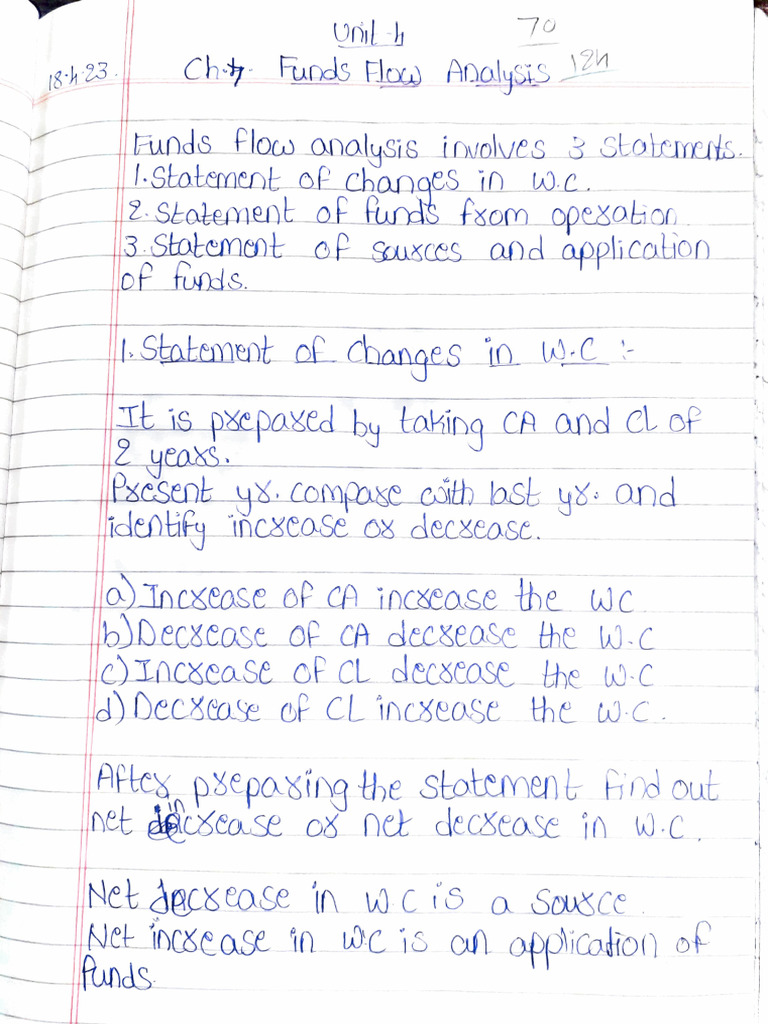 Unit-4
70
18.4.23.
Ch.7. Funds Flow Analysis
124
Funds flow analysis involves 3 statements.
1. Statement of changes in w.c.
2. Statement of funds from operation.
3. Statement of sources and application
of funds.
1. Statement of changes in W.C :-
It is prepared by taking CA and CL of
2 years.
Present yr. compare with last yr. and
identify increase or decrease.
a) Increase of CA increase the WC
b) Decrease of CA decrease the W.C
c) Increase of CL decrease the W.C
d) Decrease of CL increase the W.C.
After preparing the statement find out
net increase or net decrease in W.C.
Net decrease in W C is a source.
Net increase in WC is an application of
funds.